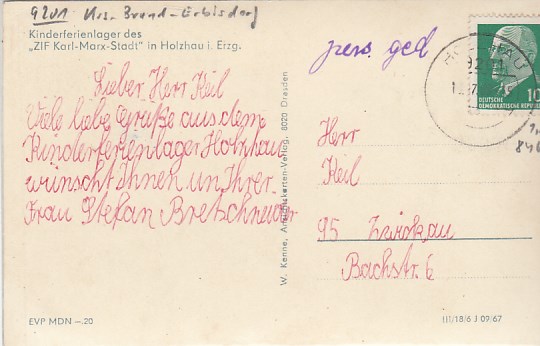 9201 Krs. Brand-Erbisdorf
Kinderferienlager des
„ZIF Karl-Marx-Stadt" in Holzhau i. Erzg.
Lieber Herr Keil
Viele liebe Grüße aus dem
Kinderferienlager Holzhau
wünscht Ihnen un Ihrer
Frau Stefan Bretschneider
EVP MDN —.20
W. Kenne, Ansichtskarten-Verlag, 8020 Dresden
pers. ged
HOLZHAU
9201
10
DEUTSCHE
DEMOKRATISCHE REPUBLIK
846
Herr
Keil
95 Zwickau
Bachstr. 6
III/18/6 J 09/67